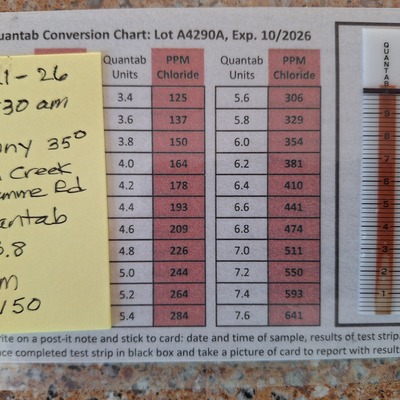 uantab Conversion Chart: Lot A4290A, Exp. 10/2026
Quantab Units PPM Chloride Quantab Units PPM Chloride
3.4 125 5.6 306
3.6 137 5.8 329
3.8 150 6.0 354
4.0 164 6.2 381
4.2 178 6.4 410
4.4 193 6.6 441
4.6 209 6.8 474
4.8 226 7.0 511
5.0 244 7.2 550
5.2 264 7.4 593
5.4 284 7.6 641
1-26
30 am
ny 35°
Creek
amme Rd
antab
.8
m
150
QUANTAB
9
8
7
6
5
4
3
2
1
rite on a post-it note and stick to card: date and time of sample, results of test strip
ce completed test strip in black box and take a picture of card to report with result